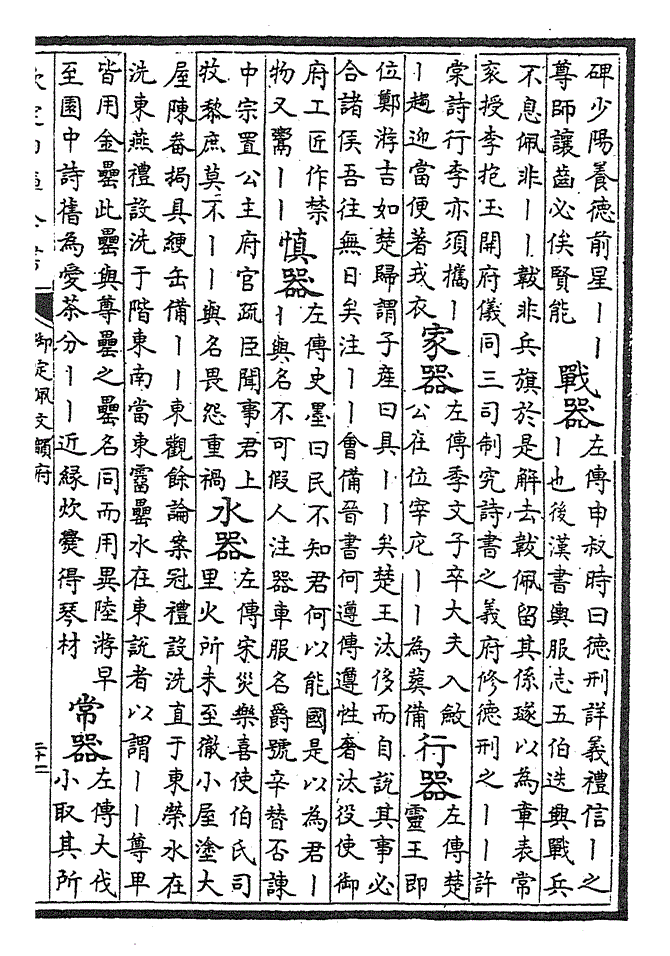 碑少陽養德前星丨丨
尊師讓齒必俟賢能
戰器
左傳申叔時曰德刑詳義禮信丨之
丨也後漢書輿服志五伯迭興戰兵
不息佩非丨丨韍非兵旗於是解去韍佩留其係璲以為章表常
衮授李抱玉開府儀同三司制究詩書之義府修德刑之丨丨許
棠詩行李亦須攜丨
丨趙迎當便著戎衣
家器
左傳季文子卒大夫入斂
公在位宰庀丨丨為葬備
行器
左傳楚
靈王即
位鄭游吉如楚歸謂子產曰具丨丨矣楚王汰侈而自說其事必
合諸侯吾往無日矣注丨丨會備晉書何遵傳遵性奢汰役使御
府工匠作禁
物又鬻丨丨
慎器
左傳史墨曰民不知君何以能國是以為君丨
丨與名不可假人注器車服名爵號辛替否諫
中宗置公主府官疏臣聞事君上
牧黎庶莫不丨丨與名畏怨重禍
水器
左傳宋災樂喜使伯氏司
里火所未至徹小屋塗大
屋陳畚挶具綆缶備丨丨東觀餘論案冠禮設洗直于東榮水在
洗東燕禮設洗于階東南當東霤罍水在東說者以謂丨丨尊卑
皆用金罍此罍與尊罍之罍名同而用異陸游早
至園中詩舊為愛茶分丨丨近緣炊爨得琴材
常器
左傳大伐
小取其所
欽定四庫全書
御定佩文韻府